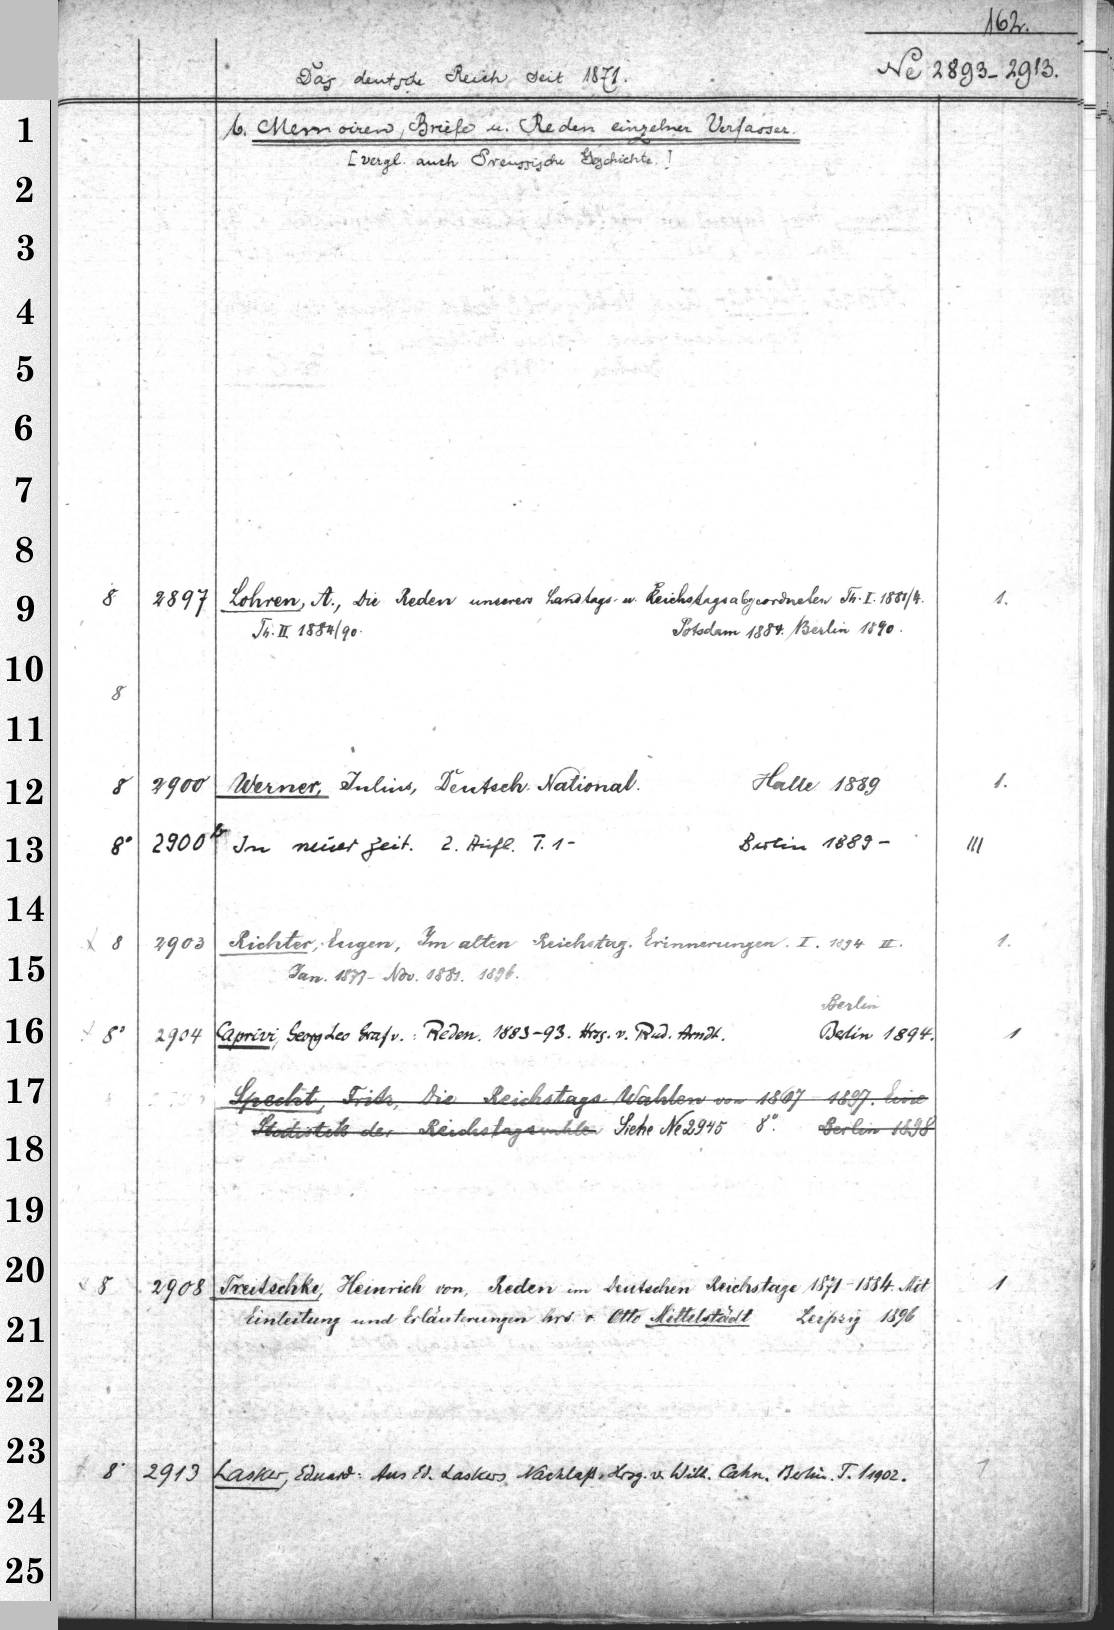 162.
Das deutsche Reich seit 1871.
Ne 2893-2913.
1
b. Memoiren, Briefe u. Reden einzelner Verfasser.
[vergl. auch Preussische Geschichte.]
2
3
4
5
6
7
8
9
8 2897 Lohren, A., Die Reden unseres Landtags- u. Reichstagsabgeordneten Th. I. 1881/4. 1.
Th. II. 1884/90. Potsdam 1884. / Berlin 1890.
10
8
11
12
8 2900 Werner, Julius, Deutsch-National. Halle 1889 1.
13
8° 2900b In neuer Zeit. 2. Aufl. T. 1- Berlin 1889- III
14
8 2903 Richter, Eugen, Im alten Reichstag. Erinnerungen. I. 1894 II. 1.
15
Jan. 1877- Nov. 1881. 1896.
Berlin
16
8° 2904 Caprivi, Georg Leo Graf v.: Reden. 1883-93. Hrsg. v. Rud. Arndt. Berlin 1894. 1
17
Specht, Fritz, Die Reichstags-Wahlen von 1867 - 1897. Eine
Statistik der Reichstagswahlen Siehe Ne 2945 8°. Berlin 1898
18
19
20
8 2908 Treitschke, Heinrich von, Reden im Deutschen Reichstage 1871-1884. Mit 1
21
Einleitung und Erläuterungen hrsg. v. Otto Mittelstädt Leipzig 1896
22
23
8° 2913 Lasker, Eduard: Aus Ed. Laskers Nachlaß. Hrsg. v. Wilh. Cahn. Berlin. T. 1 1902. 1
24
25